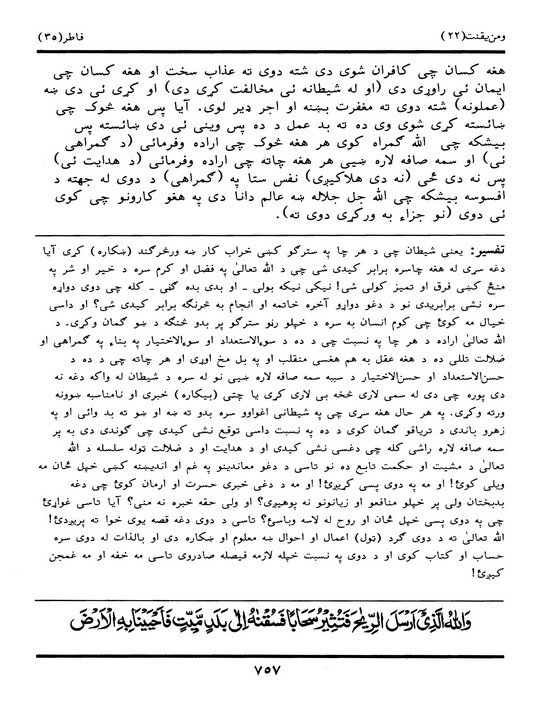 ومن يقنت (٢٢)
فاطر (٣٥)
هغه کسان چی کافران شوی دی شته دوی ته عذاب سخت او هغه کسان چی
ایمان ئی راوړی دی (او له شیطانه ئی مخالفت کړی دی) او کړی ئی دی ښه
(عملونه) شته دوی ته مغفرت بښنه او اجر ډیر لوی. آیا پس هغه څوک چی
ښائسته کړی شوی وی ده ته بد عمل د ده پس وینی ئی دی ښائسته پس
بیشکه چی الله گمراه کوی هر هغه څوک چی اراده وفرمائی (د گمراهی
ئی) او سمه صافه لاره ښیی هر هغه چاته چی اراده وفرمائی (د هدایت ئی)
پس نه دی ځی (نه دی هلاکیږی) نفس ستا په (گمراهی) د دوی له جهته د
افسوسه بیشکه چی الله جل جلاله ښه عالم دانا دی په هغو کارونو چی کوی
ئی دوی (نو جزاء به ورکړی دوی ته).
تفسیر: یعنی شیطان چی د هر چا په سترگو کښی خراب کار ښه ورڅرگند (ښکاره) کړی آیا
دغه سړی له هغه چاسره برابر کیدی شی چی د الله تعالیٰ په فضل او کرم سره د خیر او شر په
منځ کښی فرق او تمیز کولی شی! نیکی نیکه بولی ـ او بدی بده گڼی ـ کله چی دوی دواړه
سره نشی برابریدی نو د دغو دواړو آخره خاتمه او انجام به څرنگه برابر کیدی شی؟ او داسی
خیال مه کوئ چی کوم انسان به سره د خپلو رنو سترگو پر بدو څنگه د ښو گمان وکړی. د
الله تعالیٰ اراده د هر چا په نسبت چی د ده د سوءالاستعداد او سوءالاختیار په بناء په گمراهی او
ضلالت تللی ده د هغه عقل به هم هغسی منقلب او په بل مخ اوړی او هر چاته چی د ده د
حسن‌الاستعداد او حسن‌الاختیار د سببه سمه صافه لاره ښیی نو له سره د شیطان له واکه دغه نه
دی پوره چی دی له سمی لاری څخه بی لاری کړی یا چتی (بیکاره) خبری او نامناسبه ښوونه
ورته وکړی. په هر حال هغه سړی چی په شیطانی اغواوو سره بدو ته ښه او ښو ته بد وائی او په
زهرو باندی د تریاقو گمان کوی د ده په نسبت داسی توقع نشی کیدی چی گوندی دی به پر
سمه صافه لاره راشی کله چی دغسی نشی کیدی او د هدایت او د ضلالت توله سلسله د الله
تعالیٰ د مشیت او حکمت تابع ده نو تاسی د دغو معاندینو په غم او اندیښنه کښی خپل ځان مه
ویلی کوئ! او مه په دوی پسی کړیږئ! او مه د دغی خبری حسرت او ارمان کوئ چی دغه
بدبختان ولی پر خپلو منافعو او زیانونو نه پوهیږی؟ او ولی حقه خبره نه منی؟ آیا تاسی غواړئ
چی په دوی پسی خپل ځان او روح له لاسه وباسئ؟ تاسی د دوی دغه قصه یوی خوا ته پریږدئ!
الله تعالیٰ ته د دوی گرد (تول) اعمال او احوال ښه معلوم او ښکاره دی او بالذات له دوی سره
حساب او کتاب کوی او د دوی په نسبت خپله لازمه فیصله صادروی تاسی مه خفه او مه غمجن
کیږئ!
وَاللّٰهُ الَّذِیْۤ اَرْسَلَ الرِّیٰحَ فَتُثِیْرُ سَحَابًا فَسُقْنٰهُ اِلٰی بَلَدٍ مَّیِّتٍ فَاَحْیَیْنَا بِهِ الْاَرْضَ
٧٥٧